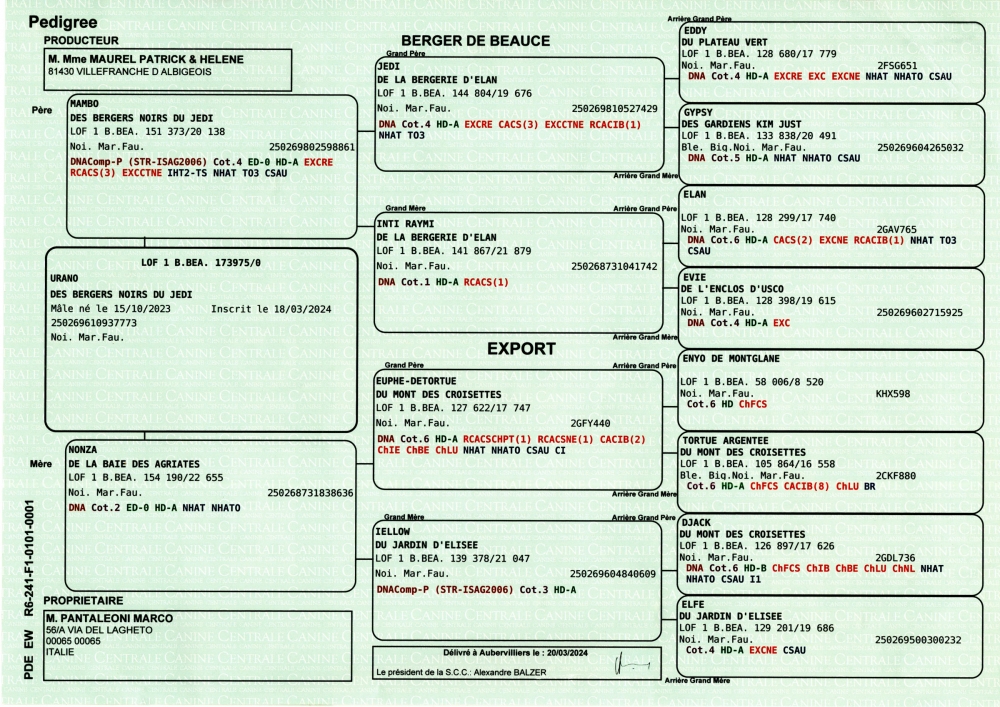 Pedigree
PRODUCTEUR
M. Mme MAUREL PATRICK & HELENE
81430 VILLEFRANCHE D ALBIGEOIS
Père
MAMBO
DES BERGERS NOIRS DU JEDI
LOF 1 B.BEA. 151 373/20 138
Noi. Mar.Fau. 250269802598861
DNAComp-P (STR-ISAG2006) Cot.4 ED-0 HD-A EXCRE
RCACS(3) EXCCTNE IHT2-TS NHAT TO3 CSAU
LOF 1 B.BEA. 173975/0
URANO
DES BERGERS NOIRS DU JEDI
Mâle né le 15/10/2023 Inscrit le 18/03/2024
250269610937773
Noi. Mar.Fau.
Mère
NONZA
DE LA BAIE DES AGRIATES
LOF 1 B.BEA. 154 190/22 655
Noi. Mar.Fau. 250268731838636
DNA Cot.2 ED-0 HD-A NHAT NHATO
PROPRIETAIRE
M. PANTALEONI MARCO
56/A VIA DEL LAGHETO
00065 00065
ITALIE
PDE EW R6-241-F1-0101-0001
BERGER DE BEAUCE
Grand Père
JEDI
DE LA BERGERIE D'ELAN
LOF 1 B.BEA. 144 804/19 676
Noi. Mar.Fau. 250269810527429
DNA Cot.4 HD-A EXCRE CACS(3) EXCCTNE RCACIB(1)
NHAT TO3
Grand Mère
INTI RAYMI
DE LA BERGERIE D'ELAN
LOF 1 B.BEA. 141 867/21 879
Noi. Mar.Fau. 250268731041742
DNA Cot.1 HD-A RCACS(1)
EXPORT
Grand Père
EUPHE-DETORTUE
DU MONT DES CROISETTES
LOF 1 B.BEA. 127 622/17 747
Noi. Mar.Fau. 2GFY440
DNA Cot.6 HD-A RCACSCHPT(1) RCACSNE(1) CACIB(2)
ChIE ChBE ChLU NHAT NHATO CSAU CI
Grand Mère
IELLOW
DU JARDIN D'ELISEE
LOF 1 B.BEA. 139 378/21 047
Noi. Mar.Fau. 250269604840609
DNAComp-P (STR-ISAG2006) Cot.3 HD-A
Délivré à Aubervilliers le : 20/03/2024
Le président de la S.C.C.: Alexandre BALZER
Arrière Grand Père
EDDY
DU PLATEAU VERT
LOF 1 B.BEA. 128 680/17 779
Noi. Mar.Fau. 2FSG651
DNA Cot.4 HD-A EXCRE EXC EXCNE NHAT NHATO CSAU
GYPSY
DES GARDIENS KIM JUST
LOF 1 B.BEA. 133 838/20 491
Ble. Big.Noi. Mar.Fau. 250269604265032
DNA Cot.5 HD-A NHAT NHATO CSAU
Arrière Grand Mère
Arrière Grand Père
ELAN
LOF 1 B.BEA. 128 299/17 740
Noi. Mar.Fau. 2GAV765
DNA Cot.6 HD-A CACS(2) EXCNE RCACIB(1) NHAT TO3
CSAU
EVIE
DE L'ENCLOS D'USCO
LOF 1 B.BEA. 128 398/19 615
Noi. Mar.Fau. 250269602715925
DNA Cot.4 HD-A EXC
Arrière Grand Mère
Arrière Grand Père
ENYO DE MONTGLANE
LOF 1 B.BEA. 58 006/8 520
Noi. Mar.Fau. KHX598
Cot.6 HD ChFCS
TORTUE ARGENTEE
DU MONT DES CROISETTES
LOF 1 B.BEA. 105 864/16 558
Ble. Big.Noi. Mar.Fau. 2CKF880
Cot.6 HD-A ChFCS CACIB(8) ChLU BR
Arrière Grand Mère
Arrière Grand Père
DJACK
DU MONT DES CROISETTES
LOF 1 B.BEA. 126 897/17 626
Noi. Mar.Fau. 2GDL736
DNA Cot.6 HD-B ChFCS ChIB ChBE ChLU ChNL NHAT
NHATO CSAU I1
ELFE
DU JARDIN D'ELISEE
LOF 1 B.BEA. 129 201/19 686
Noi. Mar.Fau. 250269500300232
Cot.4 HD-A EXCNE CSAU
Arrière Grand Mère